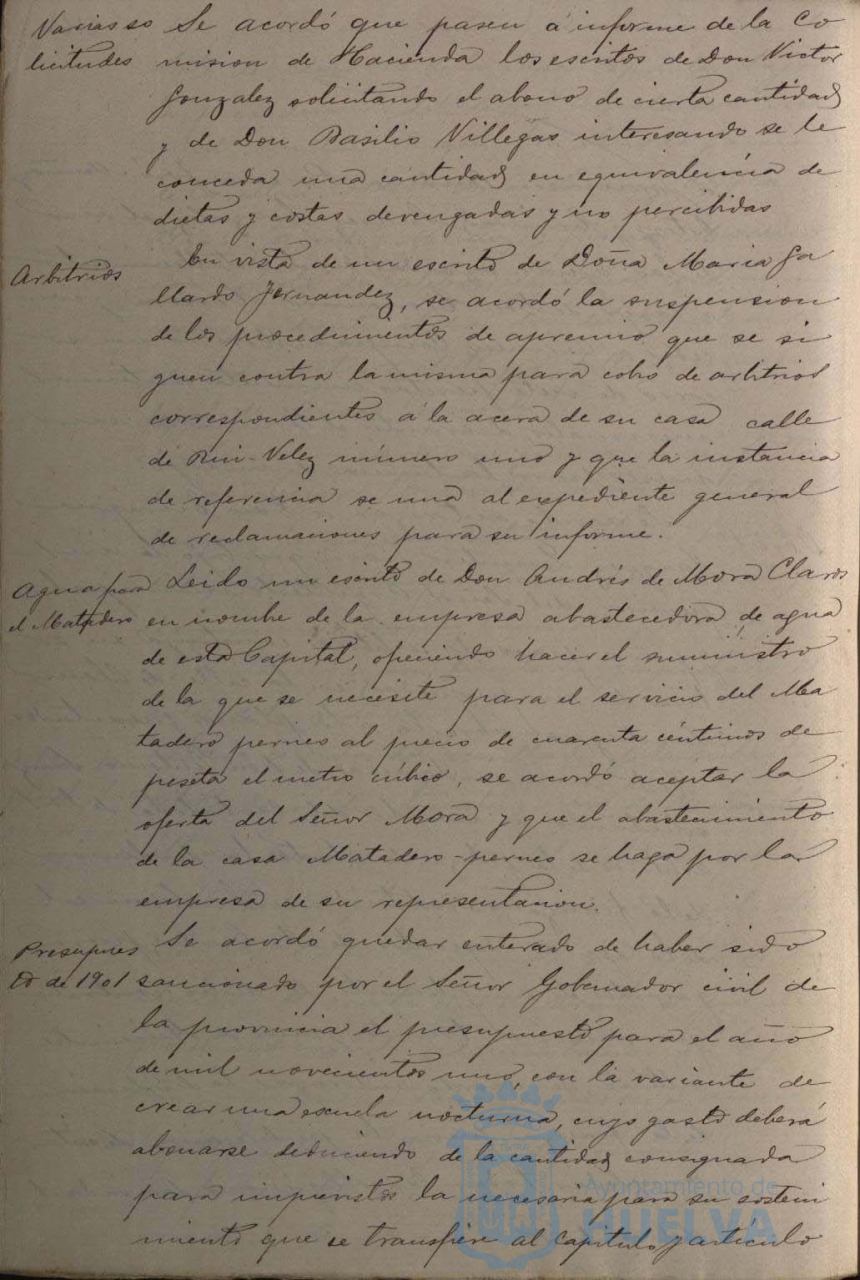 Varias so
licitudes
Se acordó que pasen á informe de la Co
mision de Hacienda los escritos de Don Victor
Gonzalez solicitando el abono de cierta cantidad
y de Don Basilio Villegas interesando se le
conceda una cantidad en equivalencia de
dietas y costas devengadas y no percibidas
Arbitrios
En vista de un escrito de Doña Maria Ga
llardo Fernandez, se acordó la suspension
de los procedimientos de apremio que se si
guen contra la misma para cobro de arbitrios
correspondientes á la acera de su casa calle
de Rui-Velez número uno y que la instancia
de referencia se una al expediente general
de reclamaciones para su informe.
Agua para
el Matadero
Leido un escrito de Don Andrés de Mora Claros
en nombre de la empresa abastecedora de agua
de esta Capital, ofreciendo hacer el suministro
de la que se necesite para el servicio del Ma
tadero perneo al precio de cuarenta céntimos de
peseta el metro cúbico, se acordó aceptar la
oferta del Señor Mora y que el abastecimiento
de la casa Matadero-perneo se haga por la
empresa de su representacion.
Presupues
to de 1901
Se acordó quedar enterado de haber sido
sancionado por el Señor Gobernador civil de
la provincia el presupuesto para el año
de mil novecientos uno, con la variante de
crear una escuela nocturna, cuyo gasto deberá
abonarse deduciendo de la cantidad consignada
para imprevistos la necesaria para su sosteni
miento que se transfiere al capítulo y artículo
Ayuntamiento de
HUELVA